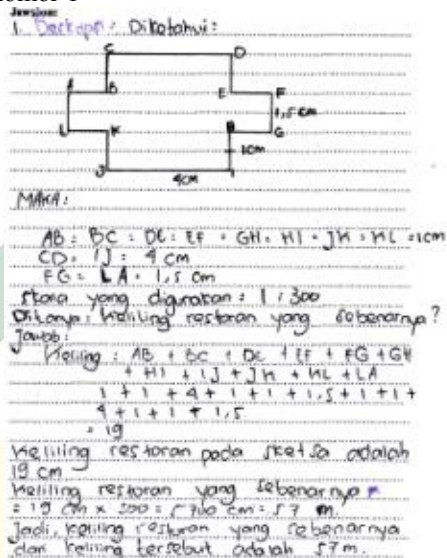 Jawaban:
1. Diketahui:
C D
A B E F
1,5 cm
L K G
1cm
J 4cm I
MAKA:
AB = BC = DE = EF = GH = HI = JK = KL = 1cm
CD = IJ = 4 cm
FG = LA = 1,5 cm
skala yang digunakan = 1 : 300
Ditanya: Keliling restoran yang sebenarnya?
Jawab:
Keliling : AB + BC + DE + EF + FG + GH
+ HI + IJ + JK + KL + LA
1 + 1 + 4 + 1 + 1 + 1,5 + 1 + 1 +
4 + 1 + 1 + 1,5
= 19
Keliling restoran pada sketsa adalah
19 cm
Keliling restoran yang sebenarnya
= 19 cm x 300 = 5700 cm = 57 m.
Jadi, keliling restoran yang sebenarnya
dari keliling tersebut adalah 57m.